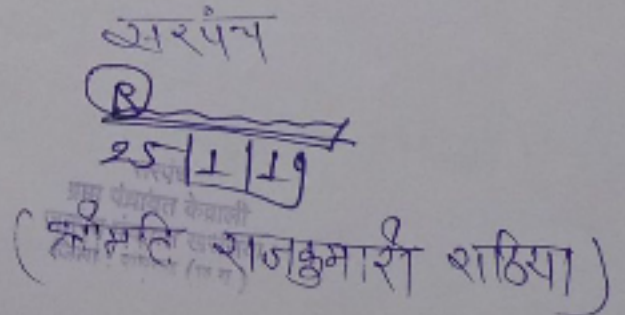 सरपंच
B
25/1/19
सरपंच
ग्राम पंचायत केवाली
(श्रीमति राजकुमारी राठिया)